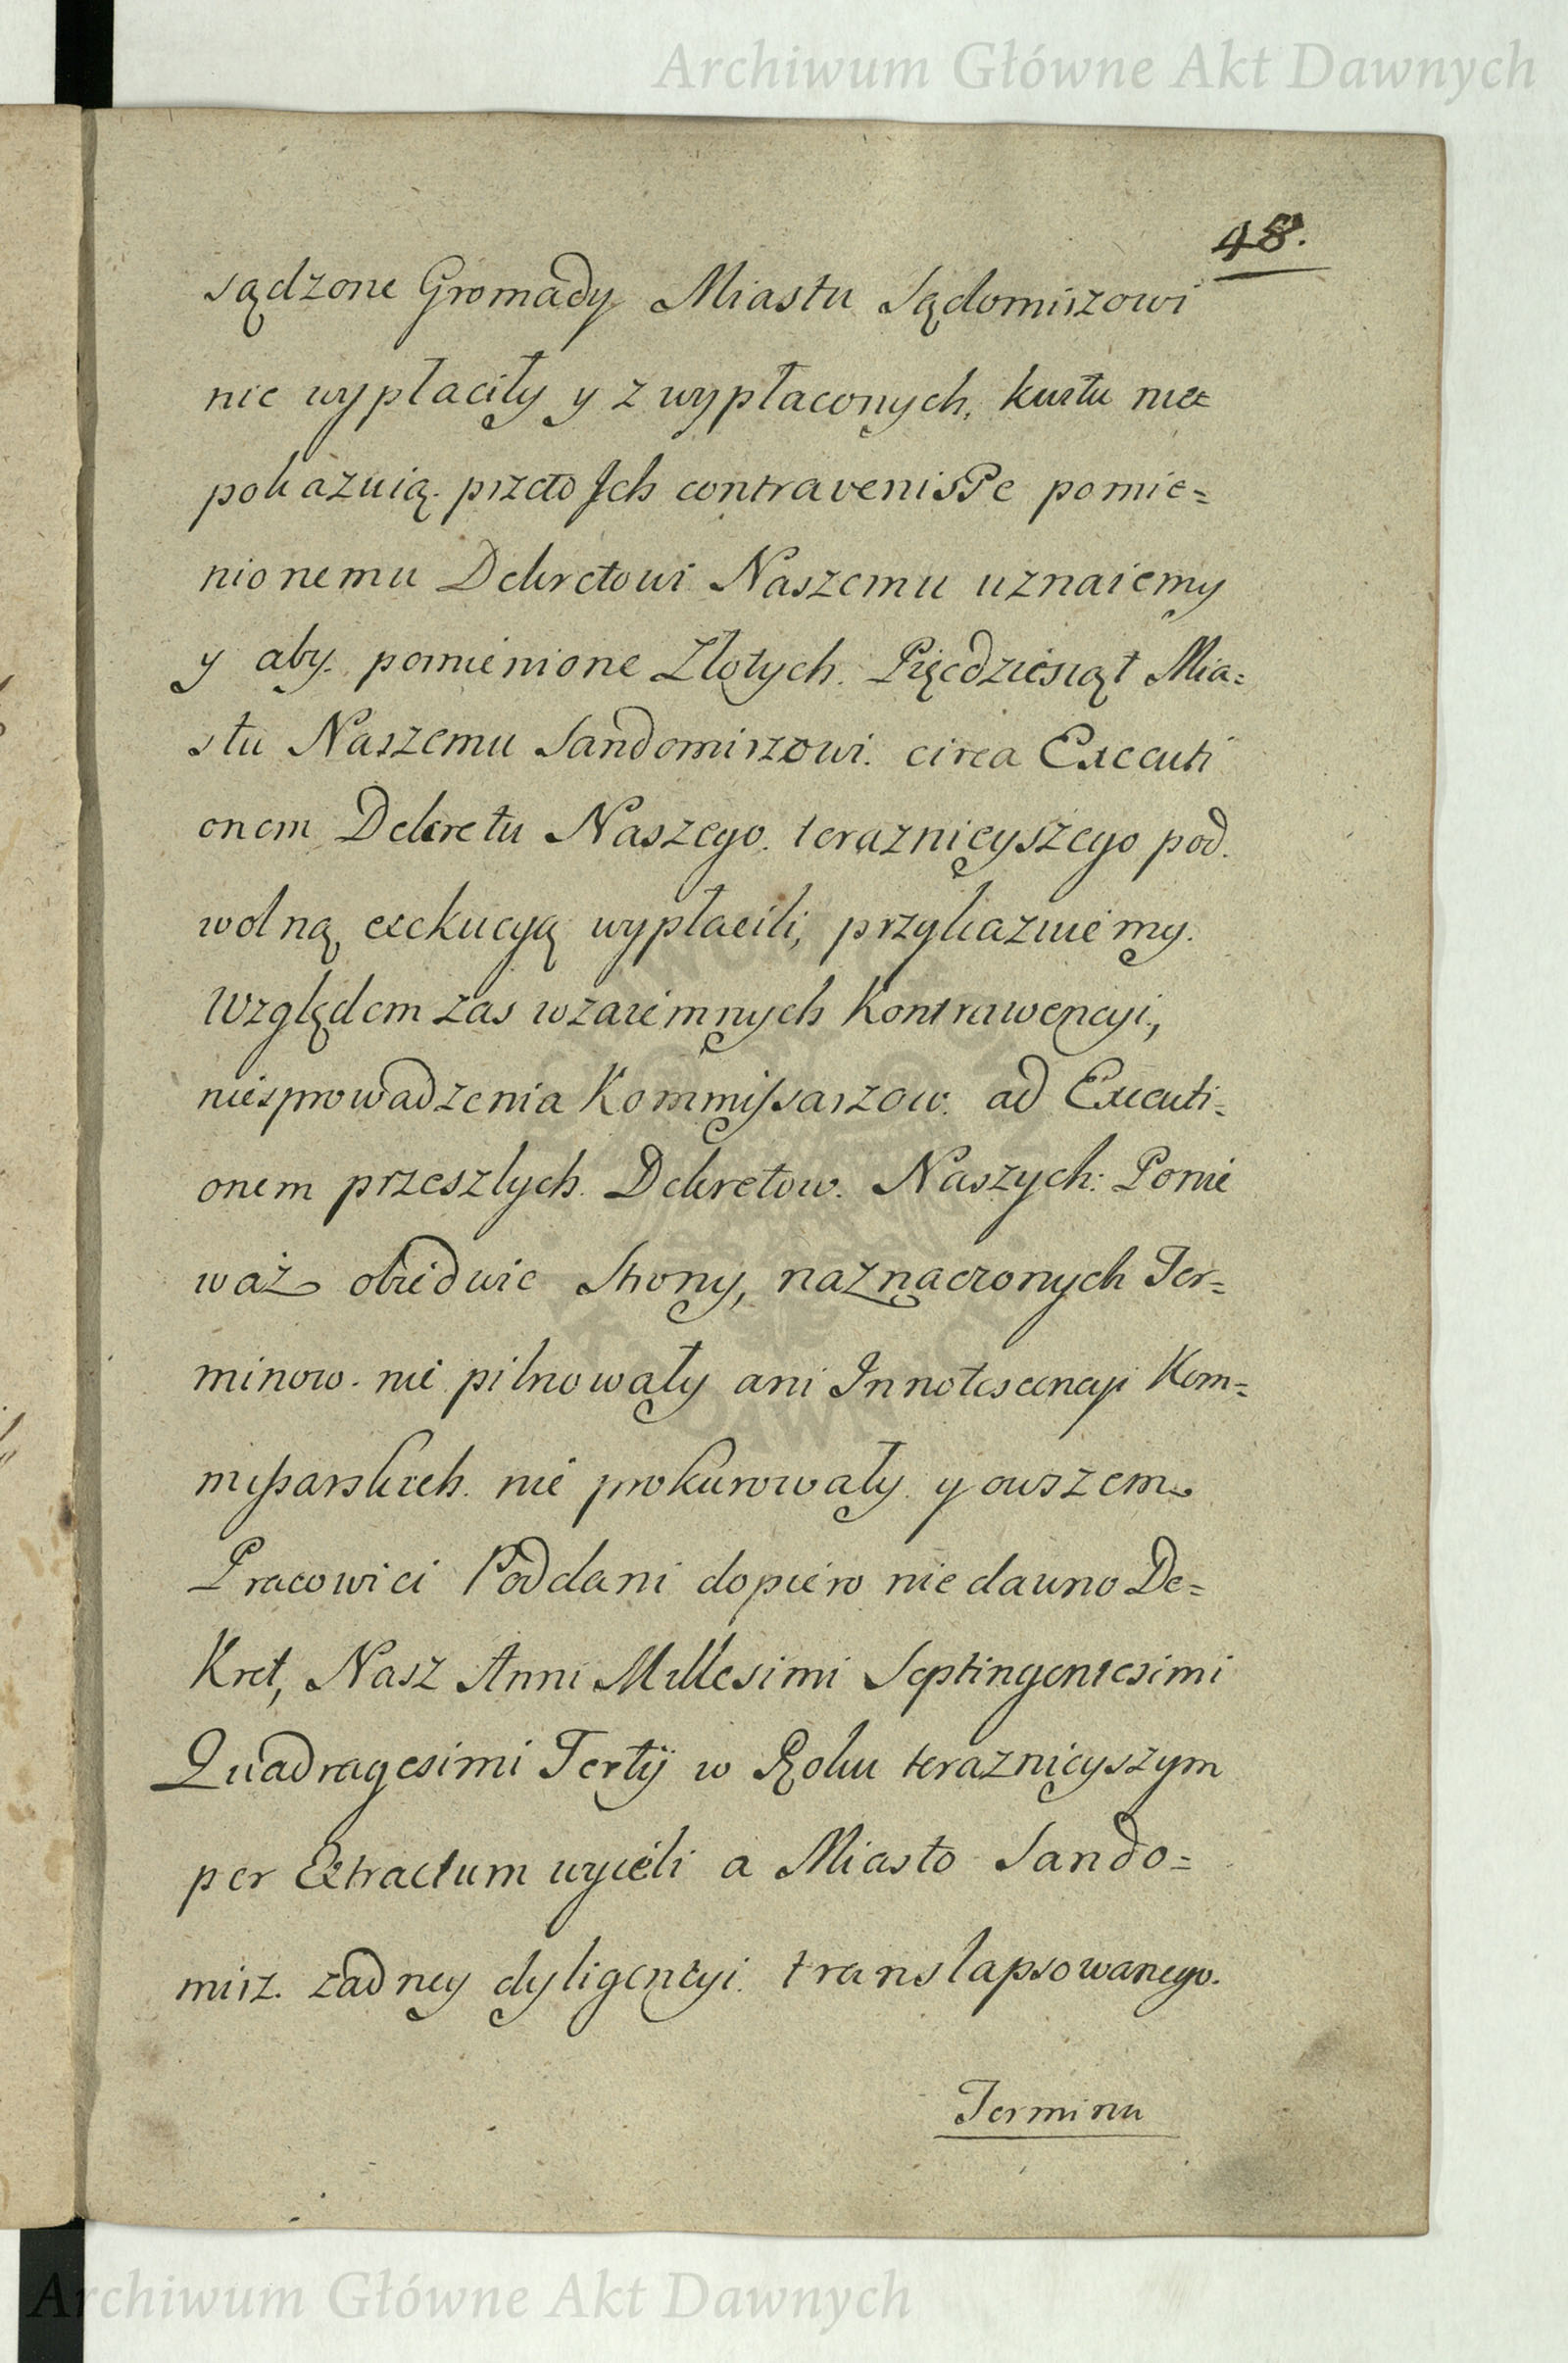 Archiwum Główne Akt Dawnych
48.
sądzone Gromady Miastu Sądomirzowi
nie wypłaciły y z wypłaconych, kwitu nie
pokazuią. przeto Jch contravenisse pomie=
nionemu Dekretowi Naszemu uznaiemy
y aby pomienione Złotych. Pięćdziesiąt Mia=
stu Naszemu Sandomirzowi. circa Executi
onem Dekretu Naszego. teraznieyszego pod.
wolną exekucyą wypłacili, przykazuiemy.
Względem zas wzaiemnych Kontrawencyi,
niesprowadzenia Kommissarzow. ad Executi=
onem przeszłych. Dekretow. Naszych: Ponie
waż obiedwie Strony, naznaczonych Ter=
minow. nie pilnowały ani Innotescencyi Kom=
missarskich. nie prokurowały y owszem
Pracowici Poddani dopiero niedawno De=
Kret, Nasz Anni Millesimi Septingentesimi
Quadragesimi Tertij w Roku teraznieyszym
per Extractum wyieli a Miasto Sando=
mirz. zadney dyligencyi. translapsowanego.
Terminu
Archiwum Główne Akt Dawnych